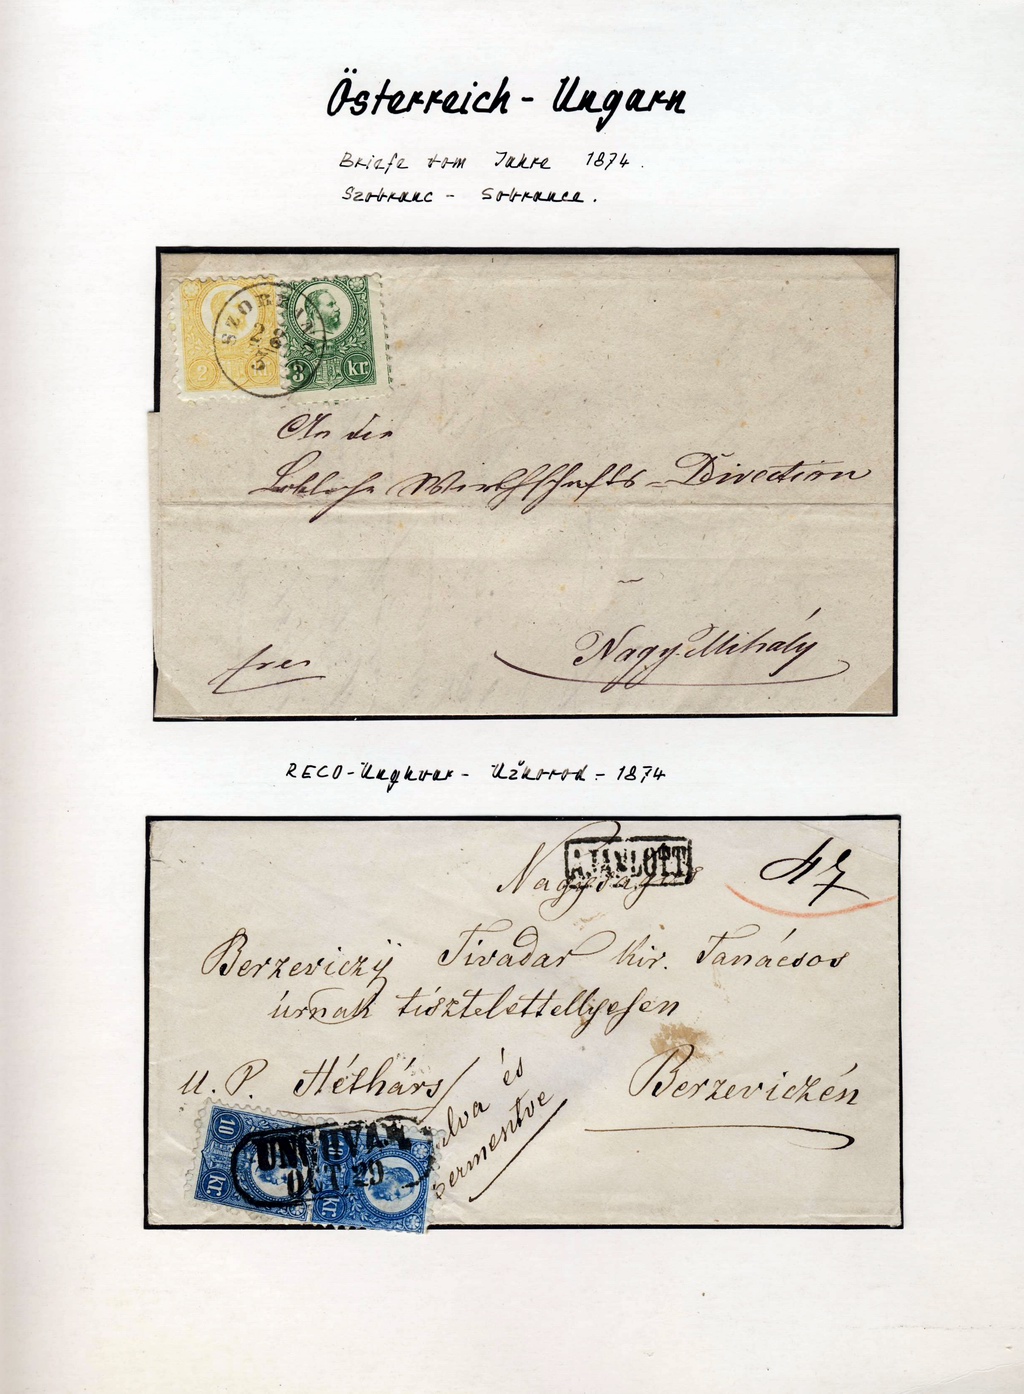 Österreich - Ungarn
Briefe vom Jahre 1874.
Szobranc - Sobrance.
SZOBRANCZ
2 kr.
3 kr.
An die
Löbliche Wirthschafts-Direction
Nagy-Mihály
RECO-Unghvar - Užhorod - 1874
AJÁNLOTT
47
Berzeviczÿ Tivadar kir. Tanácsos
úrnak tisztelettellyesen
u. P. Héthárs/ és
Berzeviczén
bermentve
UNGHVÁR
OCT. 29
10 kr.
kr.